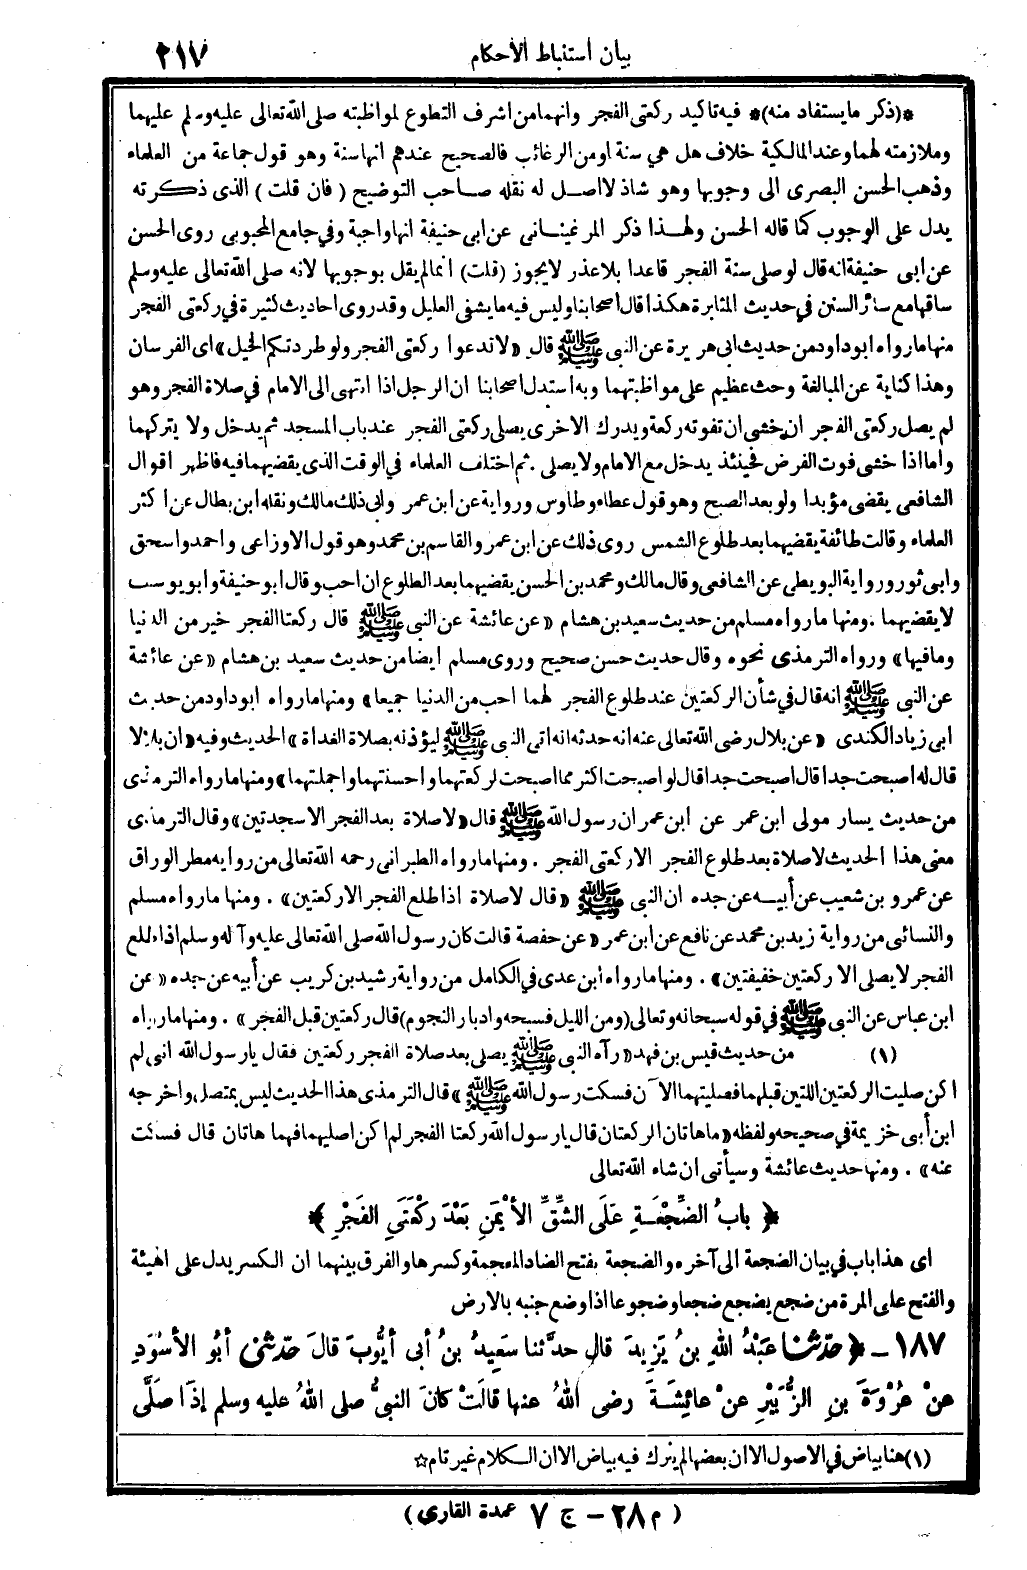 بيان استنباط الأحكام ٢١٧
*(ذكر ما يستفاد منه)* فيه تاكيد ركعتى الفجر وانهما من اشرف التطوع لمواظبته صلى الله تعالى عليه وسلم عليهما
وملازمته لهما وعند المالكية خلاف هل هي سنة او من الرغائب فالصحيح عندهم انها سنة وهو قول جماعة من العلماء
وذهب الحسن البصرى الى وجوبها وهو شاذ لا اصل له نقله صاحب التوضيح (فان قلت) الذى ذكرته
يدل على الوجوب كما قاله الحسن ولهذا ذكر المرغينانى عن ابى حنيفة انها واجبة وفي جامع المحبوبى روى الحسن
عن أبى حنيفة انه قال لو صلى سنة الفجر قاعدا بلا عذر لايجوز (قلت) انما لم يقل بوجوبها لانه صلى الله تعالى عليه وسلم
ساقها مع سائر السنن في حديث المثابرة هكذا قال أصحابنا وليس فيه ما يشفى العليل وقد روى احاديث كثيرة في ركعتى الفجر
منها مارواه ابو داود من حديث ابى هريرة عن النبى ﷺ قال «لا تدعوا ركعتى الفجر ولو طردتكم الخيل» اى الفرسان
وهذا كناية عن المبالغة وحث عظيم على مواظبتهما وبه استدل اصحابنا ان الرجل اذا انتهى الى الامام في صلاة الفجر وهو
لم يصل ركعتى الفجر ان خشى ان تفوته ركعة ويدرك الاخرى يصلى ركعتى الفجر عند باب المسجد ثم يدخل ولا يتركهما
واما اذا خشى فوت الفرض فحينئذ يدخل مع الامام ولا يصلى . ثم اختلف العلماء في الوقت الذى يقضيهما فيه فاظهر اقوال
الشافعى يقضى مؤبدا ولو بعد الصبح وهو قول عطاء وطاوس ورواية عن ابن عمر وابى ذلك مالك ونقله ابن بطال عن اكثر
العلماء وقالت طائفة يقضيهما بعد طلوع الشمس روى ذلك عن ابن عمر والقاسم بن محمد وهو قول الاوزاعى واحمد واسحق
وابى ثور ورواية البويطى عن الشافعى وقال مالك ومحمد بن الحسن يقضيهما بعد الطلوع ان احب وقال ابو حنيفة وابو يوسف
لا يقضيهما . ومنها مارواه مسلم من حديث سعيد بن هشام «عن عائشة عن النبى ﷺ قال ركعتا الفجر خير من الدنيا
ومافيها» ورواه الترمذى نحوه وقال حديث حسن صحيح وروى مسلم ايضا من حديث سعيد بن هشام «عن عائشة
عن النبى ﷺ انه قال في شأن الركعتين عند طلوع الفجر لهما احب من الدنيا جميعا» ومنها مارواه ابو داود من حديث
ابى زياد الكندى «عن بلال رضى الله تعالى عنه انه حدثه انه اتى النبى ﷺ ليؤذنه بصلاة الغداة» الحديث وفيه «ان بلالا
قال له اصبحت جدا قال اصبحت جدا قال لو اصبحت اكثر مما اصبحت لركعتهما واحسنتهما واجملتهما» ومنها مارواه الترمذى
من حديث يسار مولى ابن عمر عن ابن عمر ان رسول الله ﷺ قال «لا صلاة بعد الفجر الا سجدتين» وقال الترمذى
معنى هذا الحديث لا صلاة بعد طلوع الفجر الا ركعتى الفجر . ومنها مارواه الطبرانى رحمه الله تعالى من رواية مطر الوراق
عن عمرو بن شعيب عن أبيه عن جده ان النبى ﷺ «قال لا صلاة اذا طلع الفجر الا ركعتين» . ومنها مارواه مسلم
والنسائى من رواية زيد بن محمد عن نافع عن ابن عمر «عن حفصة قالت كان رسول الله صلى الله تعالى عليه وآله وسلم اذا طلع
الفجر لا يصلى الا ركعتين خفيفتين» . ومنها مارواه ابن عدى في الكامل من رواية رشيد بن كريب عن أبيه عن جده «عن
ابن عباس عن النبى ﷺ في قوله سبحانه وتعالى (ومن الليل فسبحه وادبار النجوم) قال ركعتين قبل الفجر» . ومنها مارواه
(١) من حديث قيس بن فهد «رآه النبى ﷺ يصلى بعد صلاة الفجر ركعتين فقال يا رسول الله انى لم
اكن صليت الركعتين اللتين قبلهما فصليتهما الآن فسكت رسول الله ﷺ» قال الترمذى هذا الحديث ليس بمتصل واخرجه
ابن أبى خزيمة في صحيحه ولفظه «ماهاتان الركعتان قال يا رسول الله ركعتا الفجر لم اكن اصليهما فهما هاتان قال فسكت
عنه» . ومنها حديث عائشة وسيأتى ان شاء الله تعالى
﴿ بابُ الضِّجْعَةِ عَلَى الشِّقِّ الأيْمَنِ بَعْدَ رَكْعَتَيِ الفَجْرِ ﴾
اى هذا باب في بيان الضجعة الى آخره والضجعة بفتح الضاد المعجمة وكسرها والفرق بينهما ان الكسر يدل على الهيئة
والفتح على المرة من ضجع يضجع ضجعا وضجوعا اذا وضع جنبه بالارض
١٨٧ - ﴿ حَدَّثنا عَبْدُ اللهِ بنُ يَزِيدَ قال حدَّثنا سَعِيدُ بنُ أبى أيُّوبَ قالَ حَدَّثنى أبُو الأسْوَدِ
عنْ عُرْوَةَ بنِ الزُّبَيْرِ عنْ عائِشَةَ رضى اللهُ عنها قالَتْ كانَ النبىُّ صلى اللهُ عليه وسلم إذَا صَلَّى
(١) هنا بياض في الاصول الا ان بعضها لم يترك فيه بياض الا ان الكلام غير تام ☆
(م ٢٨ - ج ٧ عمدة القارى)